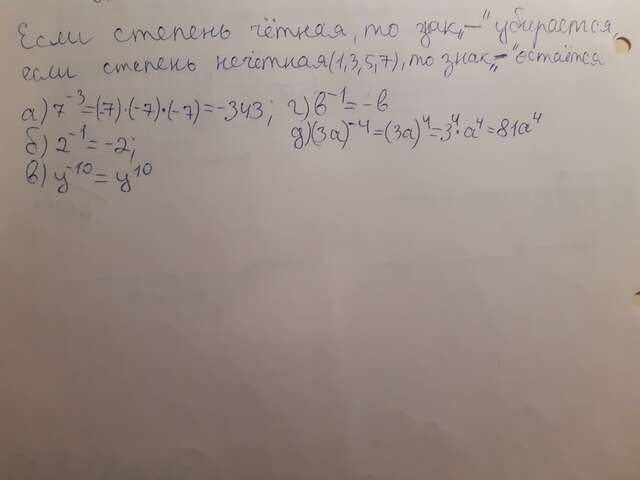 Если степень чётная, то зак „–" убирается,
если степень нечётная (1,3,5,7), то знак „–" остаётся
а) 7⁻³=(7)·(-7)·(-7)=-343; г) в⁻¹=-в
б) 2⁻¹=-2; д) (3а)⁻⁴=(3а)⁴=3⁴·а⁴=81а⁴
в) y⁻¹⁰=y¹⁰